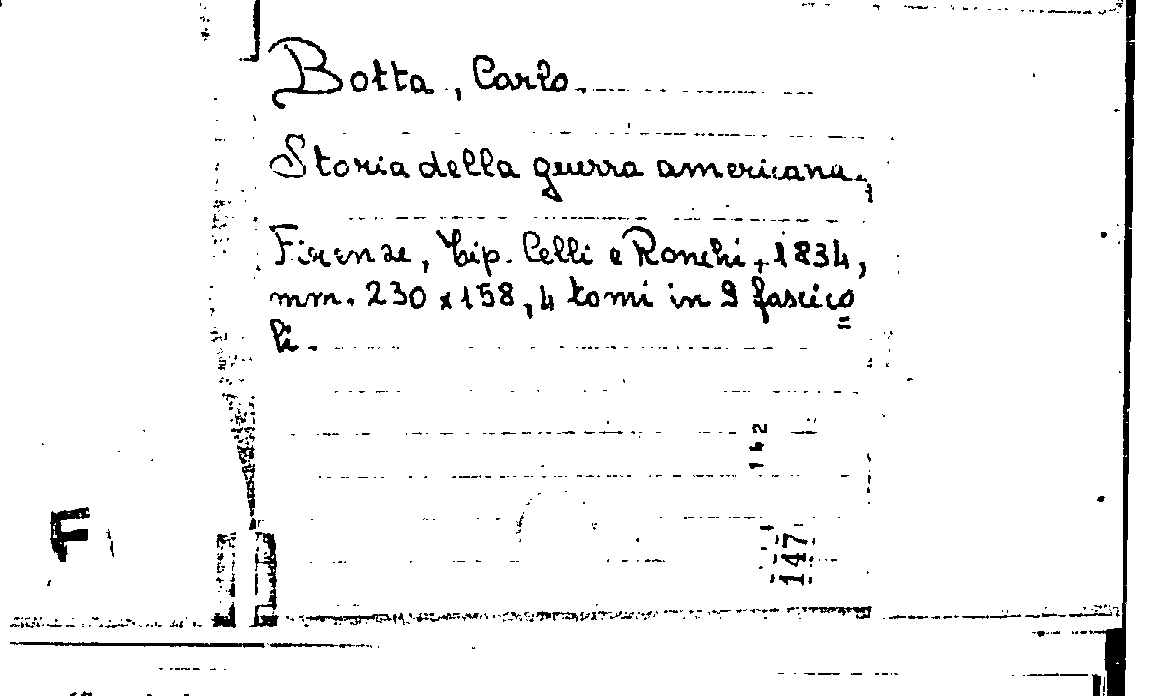 Botta, Carlo.
Storia della guerra americana,
Firenze, Tip. Celli e Ronchi, 1834,
mm. 230 x 158, 4 tomi in 9 fascico=
li.
142
F
147